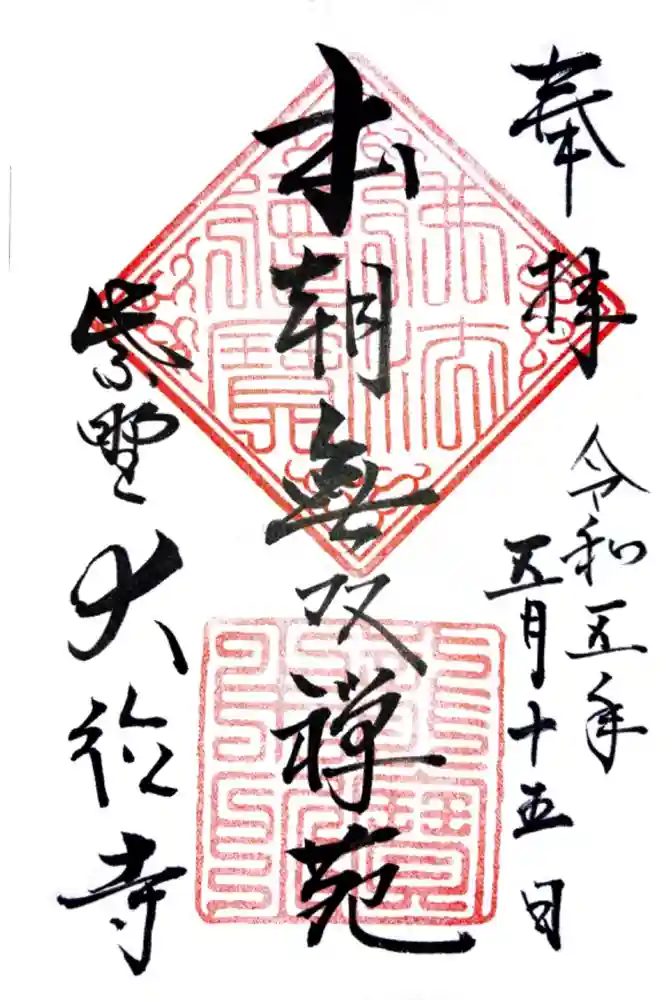 奉拝
令和五年
五月十五日
本朝無双禅苑
紫野
大徳寺
佛法僧寶